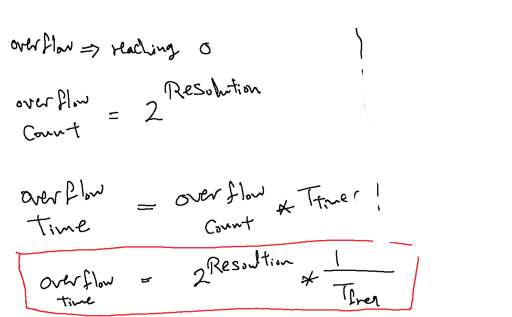 overflow ⇒ reaching 0
overflow Count = 2^Resolution
overflow Time = overflow Count * Ttimer
overflow time = 2^Resoultion * 1 / Tfreq